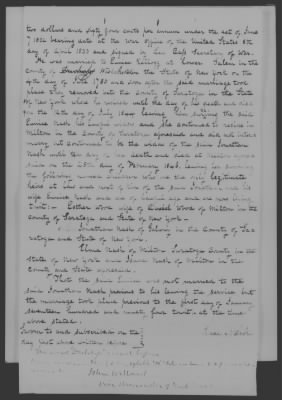 two dollars and sixty four cents per annum under the act of June
7 1832 bearing date at the War Office of the United States 8th
day of April 1833 and signed by Lewis Cass Secretary of War.
He was married to Eunice Kellogg at Lower Salem in the
County of in the State of New York on the
4th day of 1780 and soon after the said marriage took
place they removed into the County of Saratoga in the State
of New York when he resided until the day of his death and died
on the 14th day of July leaving him surviving the said
Eunice Nash his widow and she continued to reside in
Milton in the County of Saratoga aforesaid and did not inter
marry but continued to be the widow of the said Jonathan
Nash until the day of her death and died at
said on the 25th day of February leaving her surviving
the following named children who are the only legitimate
heirs at law and next of kin of the said Jonathan and his
wife Eunice Nash and are of lawful age and are now living
to wit: Esther Wood wife of Wood of Milton in the
County of Saratoga and State of New York
Jonathan Nash of Galway in the County of Sa
ratoga and State of New York.
Nash of Milton Saratoga County in the
State of New York and Nash of Milton in the
County and State aforesaid.
That the said Eunice was not married to the
said Jonathan Nash previous to his leaving the service but
the marriage took place previous to the first day of January
seventeen hundred and ninety four to wit: at the time
above stated:
Sworn to and subscribed on the
day last above written before
John Willard